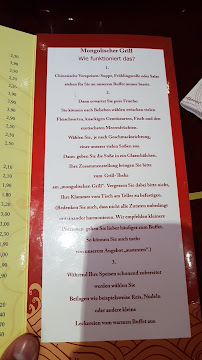 Mongolischer Grill
Wie funktioniert das?
1.
Chinesische Vorspeisen: Suppe, Frühlingsrolle oder Salat
stehen für Sie an unserem Buffet immer bereit.
2.
Dann erwartet Sie pure Frische:
Sie können nach Belieben wählen zwischen vielen
Fleischsorten, knackigen Gemüsesorten, Fisch und den
exotischsten Meeresfrüchten.
Wählen Sie, je nach Geschmacksrichtung,
einer unserer vielen Soßen aus.
Dann geben Sie die Soße in ein Glasschälchen.
Ihre Zusammenstellung bringen Sie bitte
zum Grill-Theke
am „mongolischer Grill“. Vergessen Sie dabei bitte nicht,
Ihre Klammer vom Tisch am Teller zu befestigen.
(Bedenken Sie auch, dass nicht alle Zutaten unbedingt
miteinander harmonieren. Wir empfehlen kleinere
Portionen, gehen Sie lieber häufiger zum Buffet.
So können Sie auch mehr
von unserem Angebot
3.
Während Ihre Speisen schonend zubereitet
werden wählen Sie
Beilagen wie beispielsweise Reis, Nudeln
oder andere kleine
Leckereien vom warmen Buffet aus.
2,50
2,90